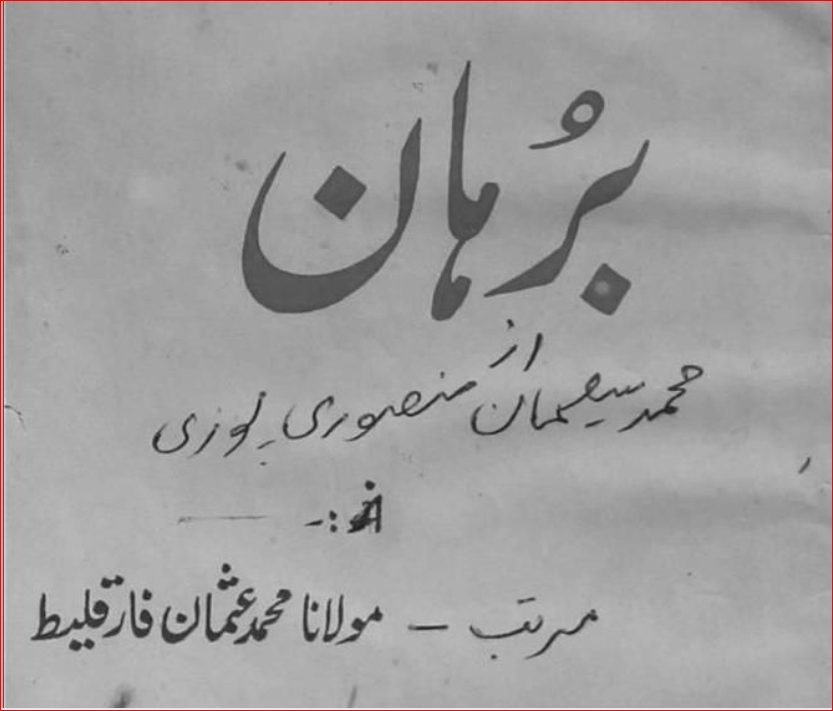 بُرہان
از
محمد سلیمان منصوری
از :-
مرتب — مولانا محمد عثمان فارقلیط